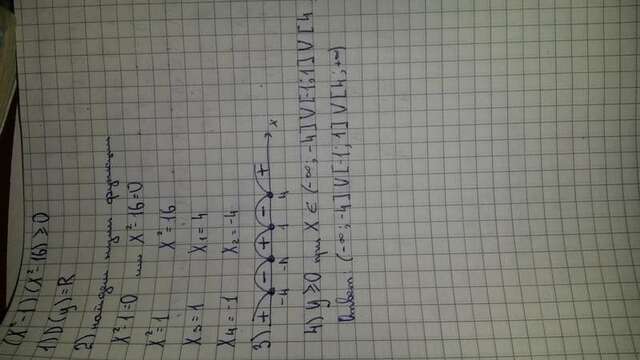 (x²-1)(x²-16)≥0
1) D(y)=R
2) найдём нули функции
x²-1=0 или x²-16=0
x²=1 x²=16
x₃=1 x₁=4
x₄=-1 x₂=-4
3) + - + - + x
-4 -1 1 4
4) y≥0 при x∈(-∞;-4]∪[-1;1]∪[4
Ответ: (-∞;-4]∪[-1;1]∪[4;+∞)